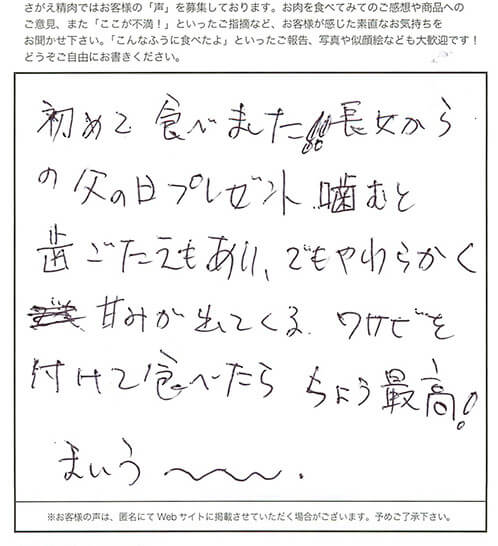 さがえ精肉ではお客様の「声」を募集しております。お肉を食べてみてのご感想や商品への
ご意見、また「ここが不満!」といったご指摘など、お客様が感じた素直なお気持ちを
お聞かせ下さい。「こんなふうに食べたよ」といったご報告、写真や似顔絵なども大歓迎です!
どうぞご自由にお書きください。
初めて食べました!!長女から
の父の日プレゼント 噛むと
歯ごたえもあり、でもやわらかく
甘みが出てくる。ワサビを
付けて食べたら ちょう最高!
まいう〜〜〜.
※お客様の声は、匿名にてWebサイトに掲載させていただく場合がございます。予めご了承下さい。